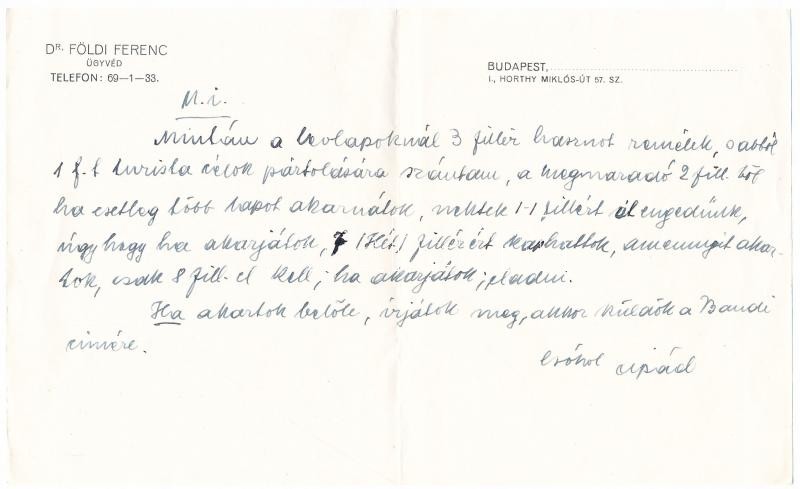 DR. FÖLDI FERENC
ÜGYVÉD
TELEFON: 69—1—33.
BUDAPEST,
I., HORTHY MIKLÓS-ÚT 57. SZ.
M. i.
Miután a levlapoknál 3 fillér hasznot remélek, s abból
1 f.-t turista célok pártolására szántam, a megmaradó 2 fill. ből
ha esetleg több lapot akarnátok, nektek 1-1 fillért át engedünk,
úgy hogy ha akarjátok, 7 (Hét) fillérért kaphattok, amennyit akar-
tok, csak 8 fill-el kell, ha akarjátok, eladni.
Ha akartok belőle, írjátok meg, akkor küldök a Bandi
címére.
Csókol Apád